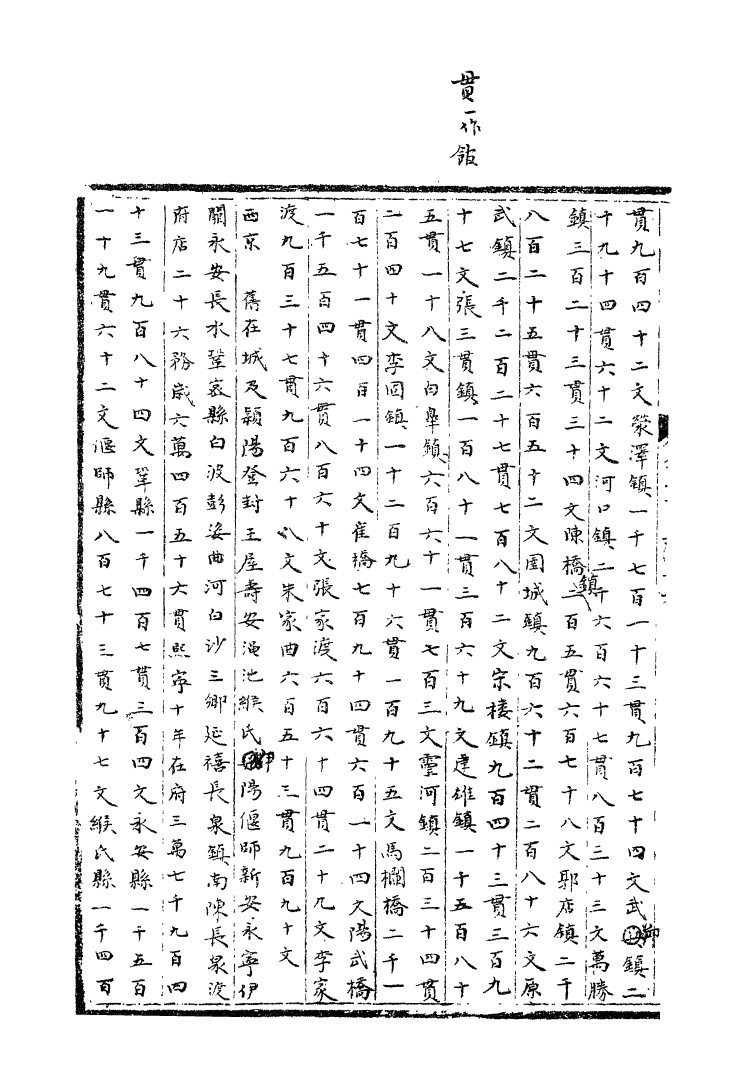 貫一作館
貫九百四十二文滎澤鎮一千七百一十三貫九百七十四文武丘鎮二
千九十四貫六十二文河口鎮二千六百六十七貫八百三十三文萬勝
鎮三百二十三貫三十四文陳橋鎮二百五貫六百七十八文郭店鎮二千
八百二十五貫六百五十二文圉城鎮九百六十二貫二百八十六文原
武鎮二千二百二十七貫七百八十二文宋樓鎮九百四十三貫三百九
十七文張三貫鎮一百八十一貫三百六十九文建雄鎮一千五百八十
五貫一十八文白皐鎮六百六十一貫七百三文靈河鎮二百三十四貫
二百四十文李固鎮一十二百九十六貫一百九十五文馬欄橋二千一
百七十一貫四百一十四文崔橋七百九十四貫六百一十四文陽武橋
一千五百四十六貫八百六十文張家渡六百六十四貫二十九文李家
渡九百三十七貫九百六十八文朱家曲六百五十三貫九百九十文
西京　舊在城及潁陽登封王屋壽安澠池緱氏陽偃師新安永寧伊
闕永安長水登密縣白波彭婆曲河白沙三鄉延禧長泉鎮南陳長泉渡
府店二十六務歲六萬四百五十六貫熙寧十年在府三萬七千九百四
十三貫九百八十四文鞏縣一千四百七貫三百四文永安縣一千五百
一十九貫六十二文偃師縣八百七十三貫九十七文緱氏縣一千四百